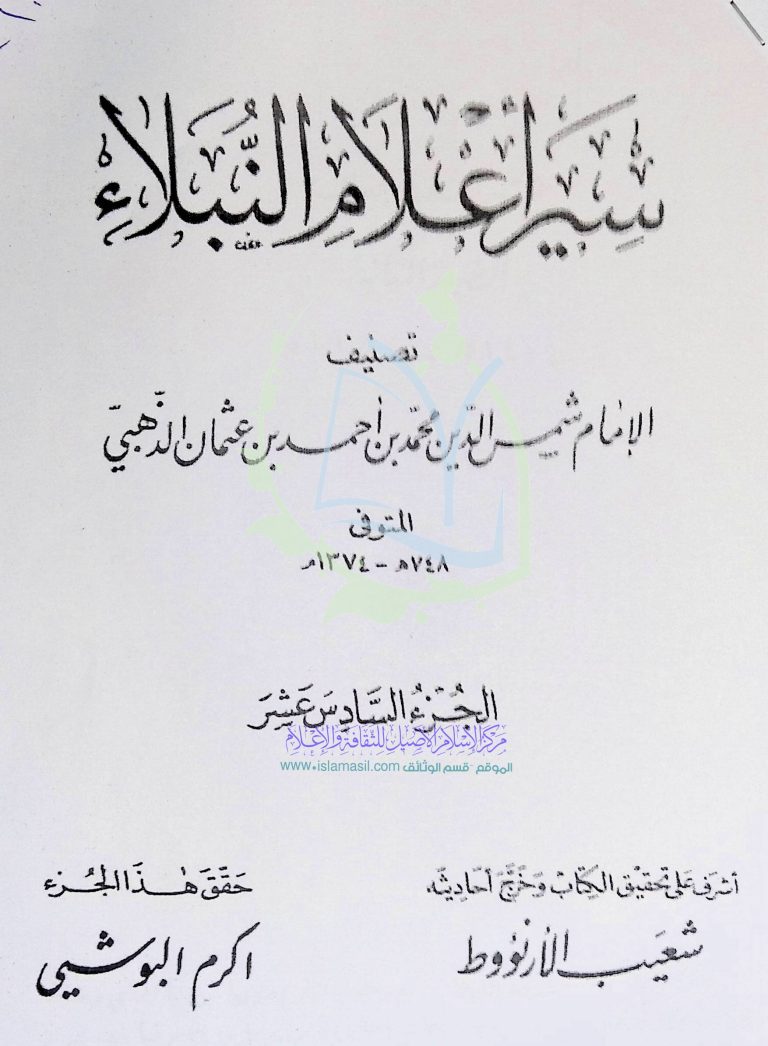 سِيَرُ أَعْلَامِ النُّبَلَاءِ
تصنيف
الإمام شمس الدّين محمّد بن أحمد بن عثمان الذّهبيّ
المتوفى
٧٤٨هـ - ١٣٧٤م
الجُزءُ السَّادِسَ عَشَرَ
مركز الإسلام الأصيل للثقافة والإعلام
الموقع - قسم الوثائق www.islamasil.com
أشرف عَلى تحقيق الكِتَاب وَخَرَّجَ أحَاديثَه
شعَيب الأرنؤوط
حَقّقَ هٰذَا الجُزء
اكرم البوشي